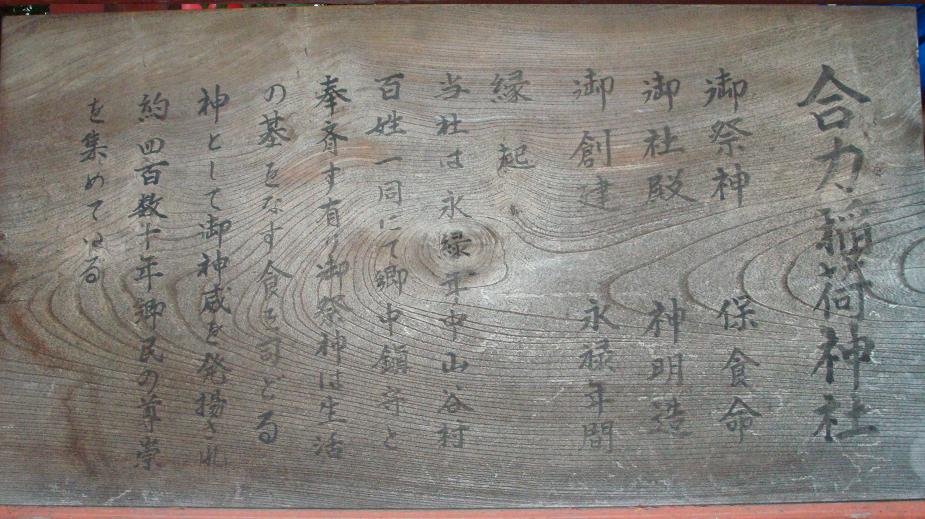 合力稲荷神社
御祭神 保食命
御社殿 神明造
御創建 永禄年間
縁起
当社は永縁年中山谷村
百姓一同にて郷中鎮守と
奉斉す有り御祭神は生活
の基をなす食を司どる
神として御神威を発揚され
約四百数十年郷民の尊崇
を集めている